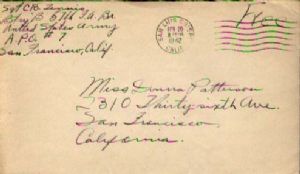 Sgt CR Dennis
Btry B 51th F.A. Bn
United States Army
A.P.O. # 7
San Francisco, Calif
SAN LUIS OBISPO
APR 20
1942
CALIF.
Free
Miss Donna Patterson
2310 Thirty sixth Ave.
San Francisco
California.